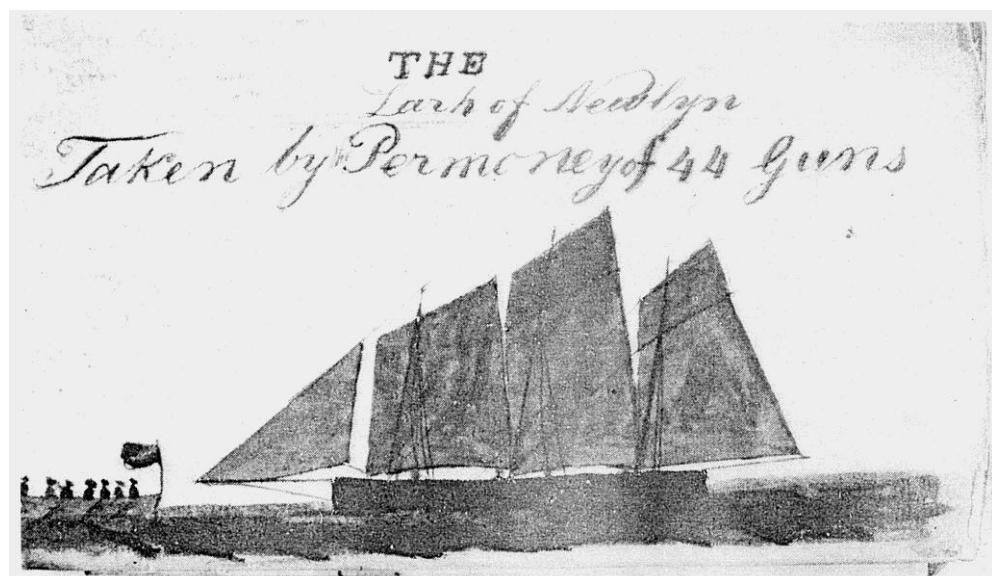 THE
Lark of Newlyn
Taken by Permoney of 44 Guns